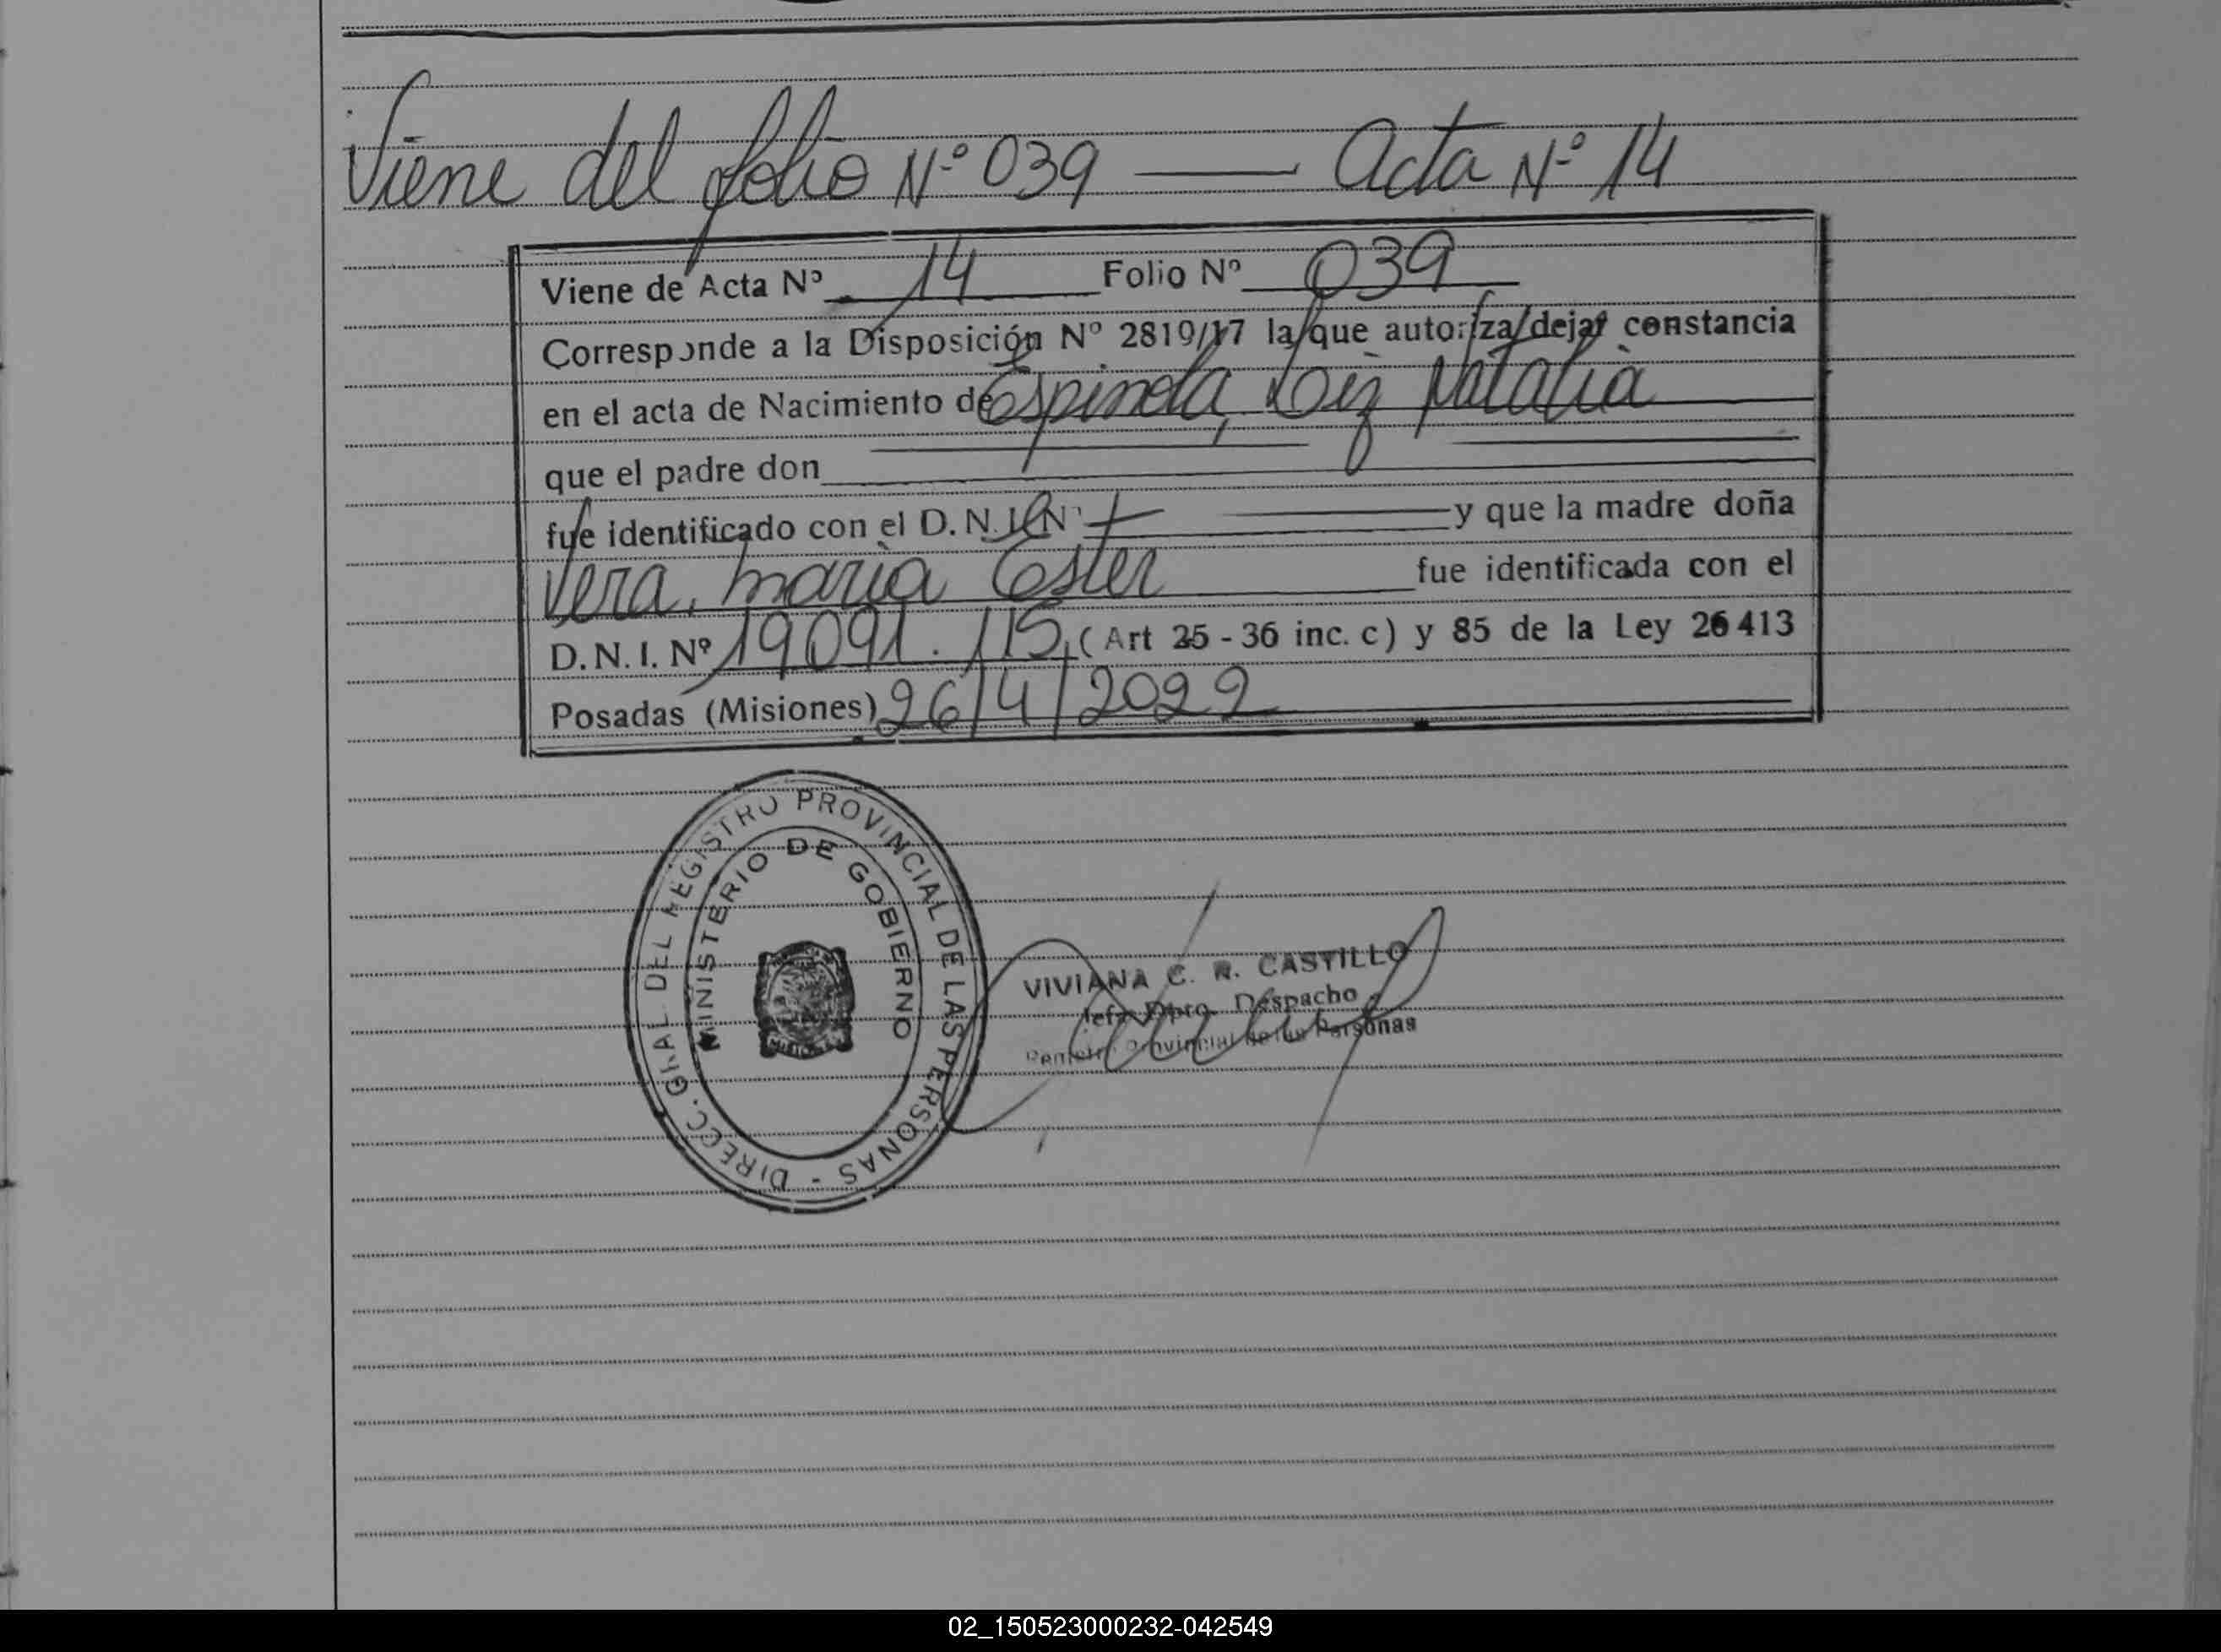 Viene del folio Nº 039 — Acta Nº 14
Viene de Acta Nº 14 Folio Nº 039
Corresponde a la Disposición Nº 2819/17 la que autoriza dejar constancia
en el acta de Nacimiento de Espinola, Natalia
que el padre don
fue identificado con el D.N.I. Nº y que la madre doña
Vera, María Ester fue identificada con el
D.N.I. Nº 19091.115, (Art 25 - 36 inc. c) y 85 de la Ley 26413
Posadas (Misiones) 26/4/2022
DIRECC. GRAL DEL REGISTRO PROVINCIAL DE LAS PERSONAS -
MINISTERIO DE GOBIERNO
VIVIANA C. R. CASTILLO
Jefa Dpto. Despacho
Registro Provincial de las Personas
02_150523000232-042549